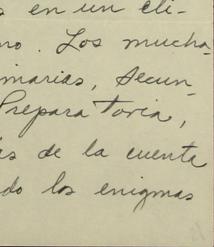 s en un cli-
mo. Los mucha-
imarias, Secun-
Preparatoria,
ás de la cuenta
do los enigmas